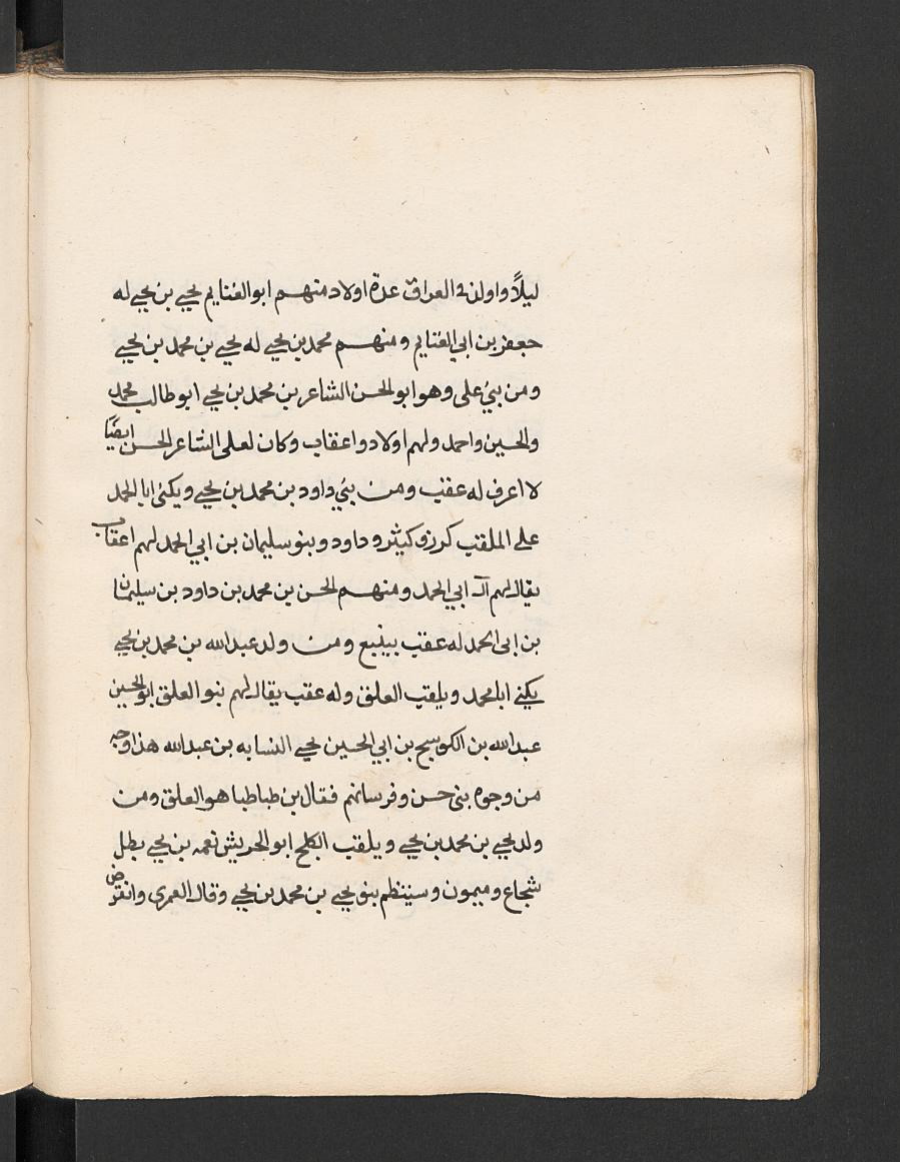 ليلاً واولد في العراق عدة اولاد منهم ابو الغنايم يحيى بن يحيى له
جعفر بن ابي الغنايم ومنهم محمد بن يحيى له يحيى بن محمد بن يحيى
ومن بني على وهو ابو الحسن الشاعر بن محمد بن يحيى ابو طالب محمد
والحسين واحمد ولهم اولاد واعقاب وكان لعلى الشاعر الحسن ايضًا
لا اعرف له عقب ومن بني داود بن محمد بن يحيى ويكنى ابا الحمد
على الملقب كرزو كيثر وداود وبنو سليمان بن ابي الحمد لهم اعقاب
يقال لهم آل ابي الحمد ومنهم الحسن بن محمد بن داود بن سليمان
بن ابى الحمد له عقب بينبع ومن ولد عبدالله بن محمد بن يحيى
يكنى ابا محمد ويلقب العلق وله عقب يقال لهم بنو العلق ابو الحسين
عبدالله بن الكوسج بن ابي الحسين يحيى النسابه بن عبدالله هذا وجه
من وجوه بنى حسن وفرسانهم فقال بن طباطبا هو العلق ومن
ولد يحيى بن محمد بن يحيى ويلقب الكلح ابو الحريش نعمه بن يحيى بطل
شجاع وميمون وسينتظم بنو يحيى بن محمد بن يحيى وقال العمرى وانقرض